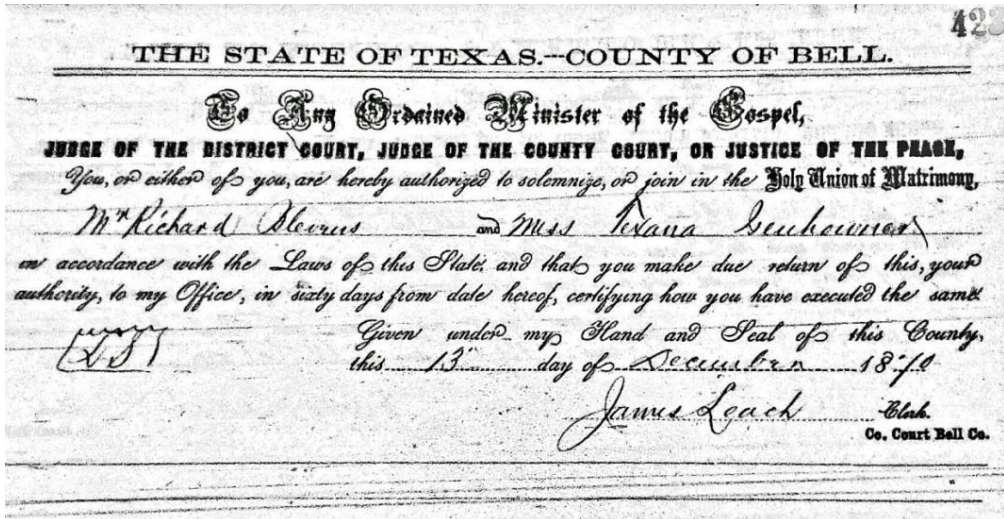 423
THE STATE OF TEXAS.--COUNTY OF BELL.
To Any Ordained Minister of the Gospel,
JUDGE OF THE DISTRICT COURT, JUDGE OF THE COUNTY COURT, OR JUSTICE OF THE PEACE,
You, or either of you, are hereby authorized to solemnize, or join in the Holy Union of Matrimony,
Mr Richard Blevins and Miss Texana
in accordance with the Laws of this State, and that you make due return of this, your
authority, to my Office, in sixty days from date hereof, certifying how you have executed the same
LS Given under my Hand and Seal of this County,
this 13" day of December 1870
James Leach Clerk.
Co. Court Bell Co.